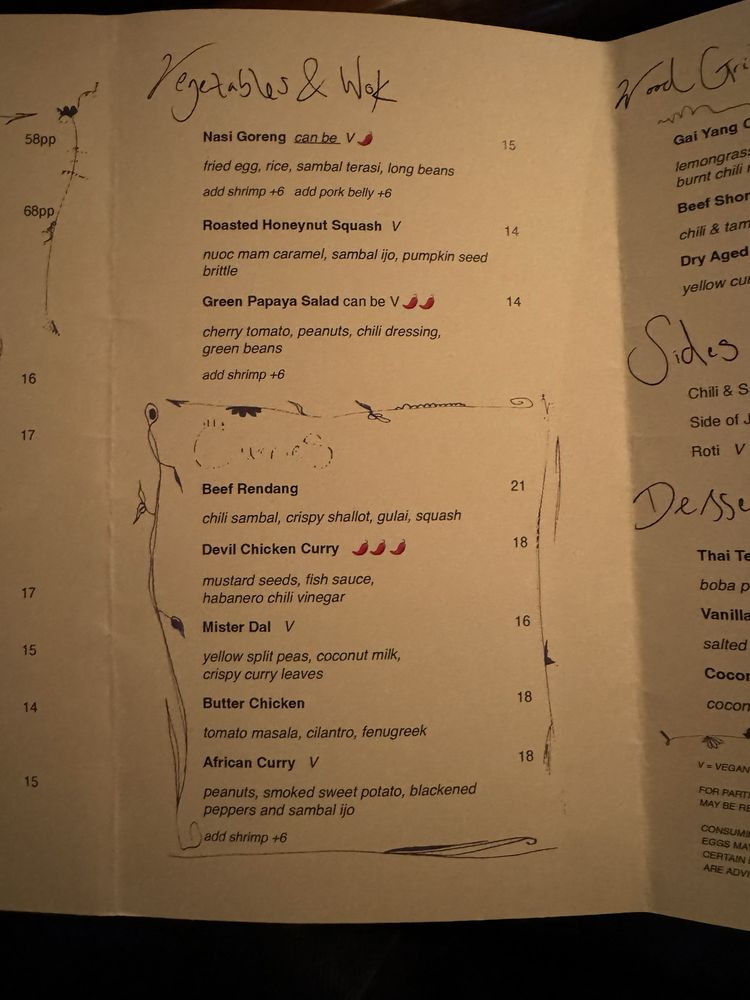 58pp
68pp
16
17
17
15
14
15
Vegetables & Wok
Nasi Goreng can be V 🌶️ 15
fried egg, rice, sambal terasi, long beans
add shrimp +6 add pork belly +6
Roasted Honeynut Squash V 14
nuoc mam caramel, sambal ijo, pumpkin seed
brittle
Green Papaya Salad can be V 🌶️🌶️ 14
cherry tomato, peanuts, chili dressing,
green beans
add shrimp +6
Curries
Beef Rendang 21
chili sambal, crispy shallot, gulai, squash
Devil Chicken Curry 🌶️🌶️🌶️ 18
mustard seeds, fish sauce,
habanero chili vinegar
Mister Dal V 16
yellow split peas, coconut milk,
crispy curry leaves
Butter Chicken 18
tomato masala, cilantro, fenugreek
African Curry V 18
peanuts, smoked sweet potato, blackened
peppers and sambal ijo
add shrimp +6
Wood Gri
Gai Yang C
lemongrass
burnt chili
Beef Shor
chili & tam
Dry Aged
yellow cur
Sides
Chili & S
Side of J
Roti V
Desse
Thai Te
boba p
Vanilla
salted
Cocon
cocon
V = VEGAN
FOR PARTI
MAY BE RE
CONSUMI
EGGS MA
CERTAIN
ARE ADVI